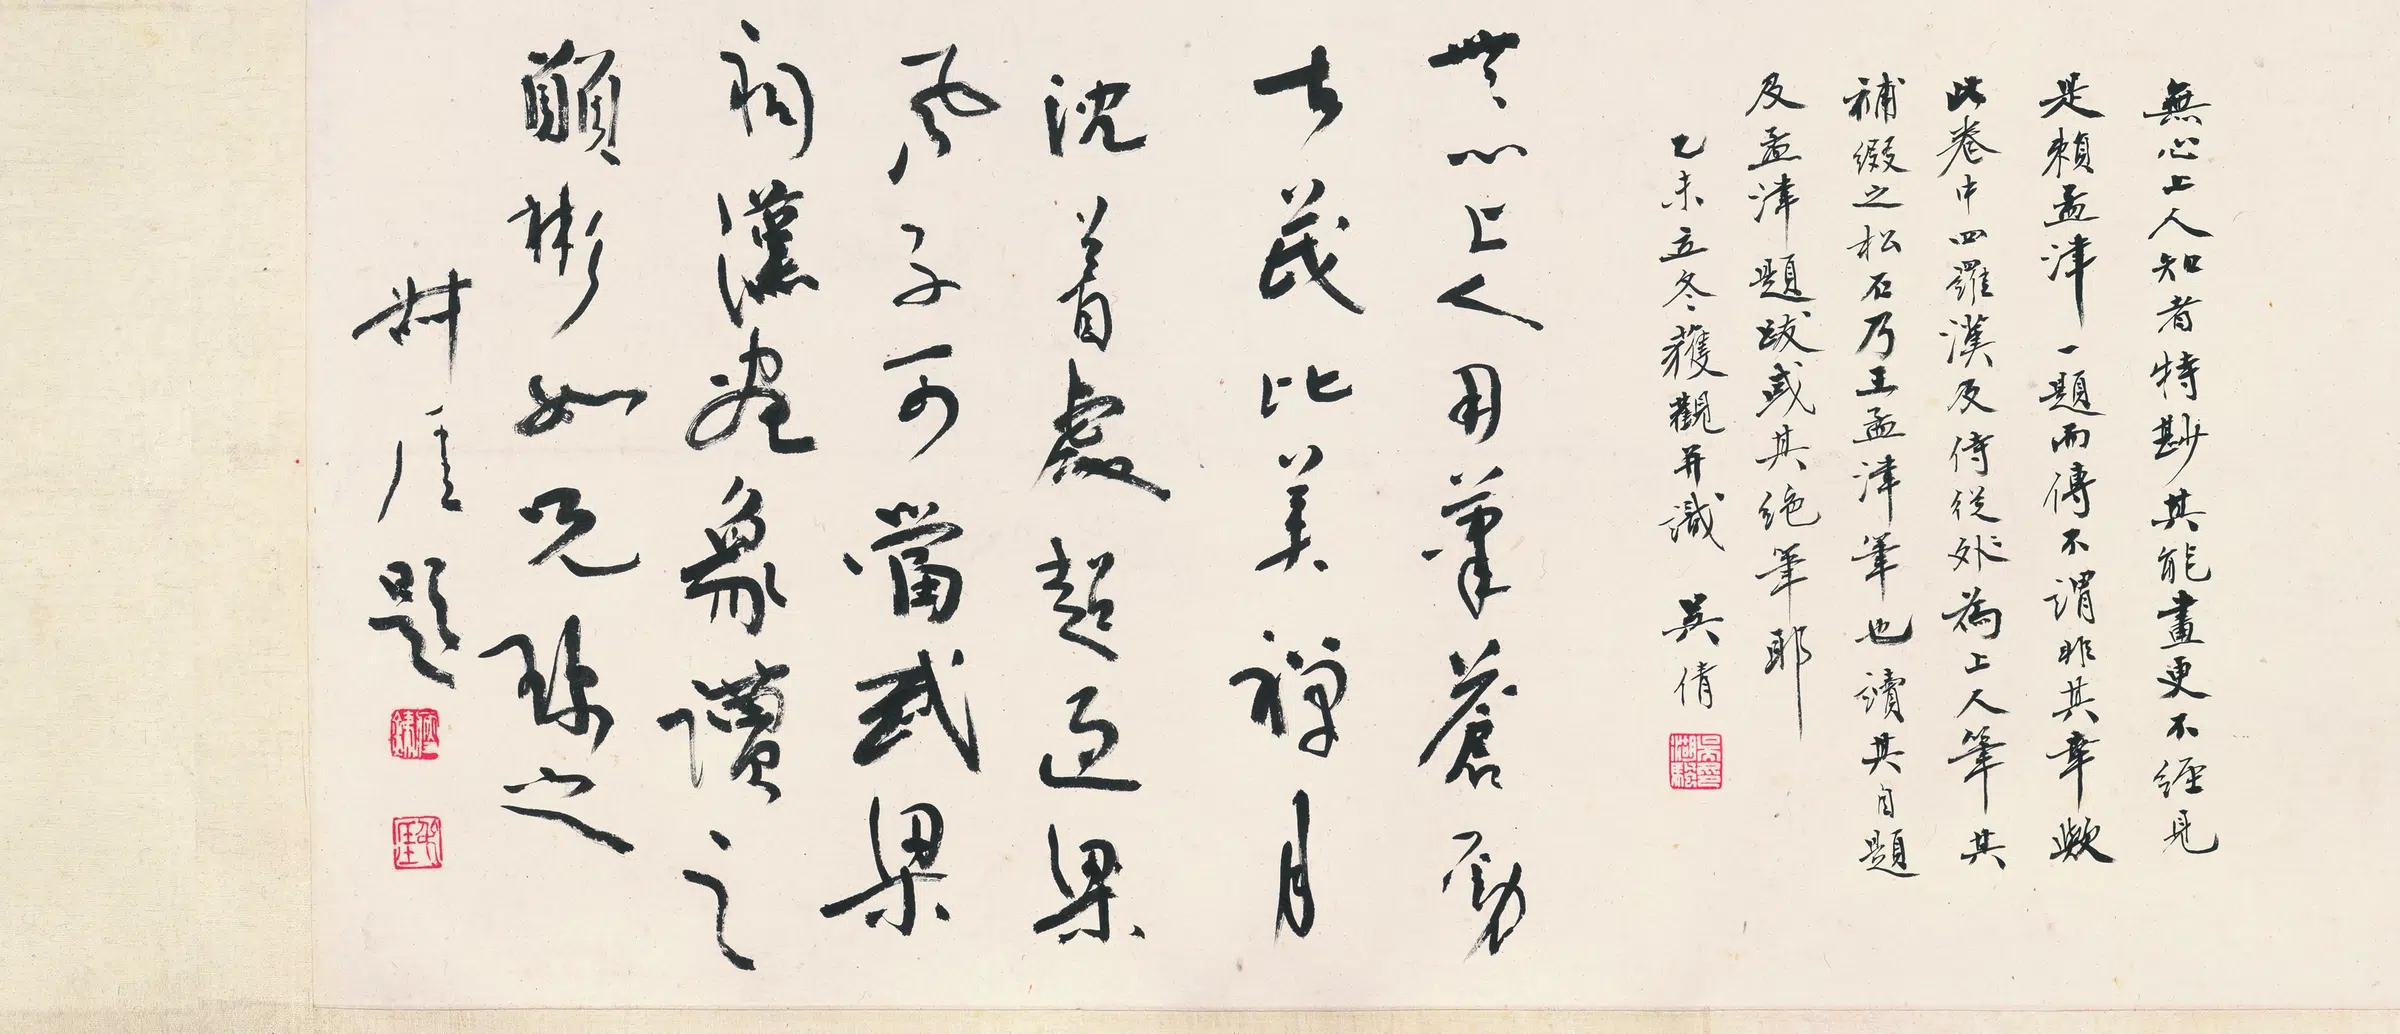 無心上人知者特尠其能畫更不經見
是賴孟津一題而傳不謂非其幸歟
此卷中四羅漢及侍從外為上人筆其
補綴之松石乃王孟津筆也讀其自題
及孟津題跋或其絕筆耶
乙未立冬獲觀并識 吳倩
無心上人用筆蒼勁
古茂比美禪月
沈着處超過梁
風子可當武梁
祠漢畫象讀之
願彬如兄珍之
叔厓題
瘦鐵
叔厓